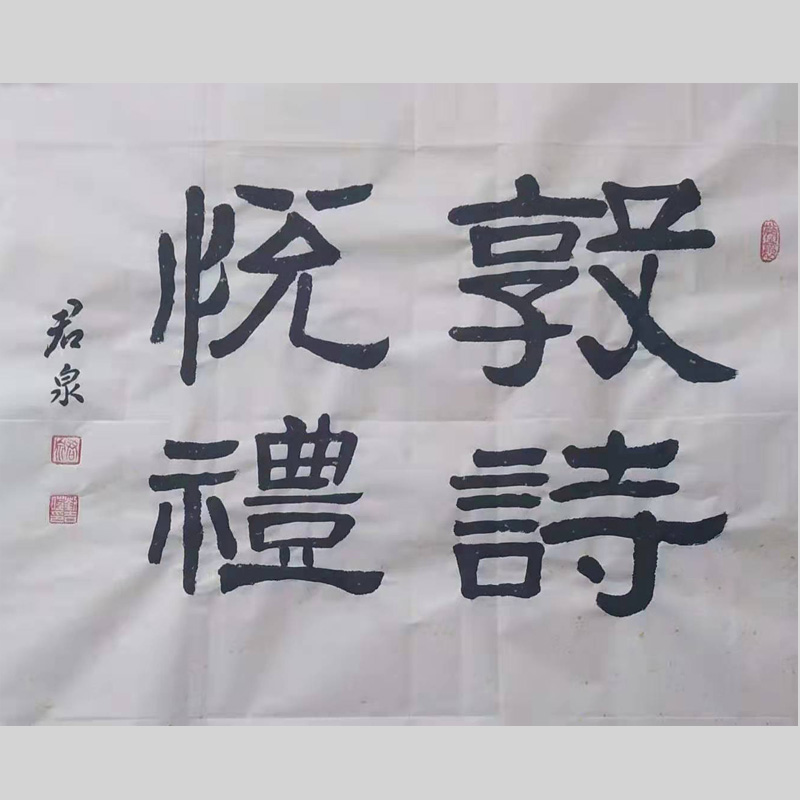 敦詩
悦禮
君泉